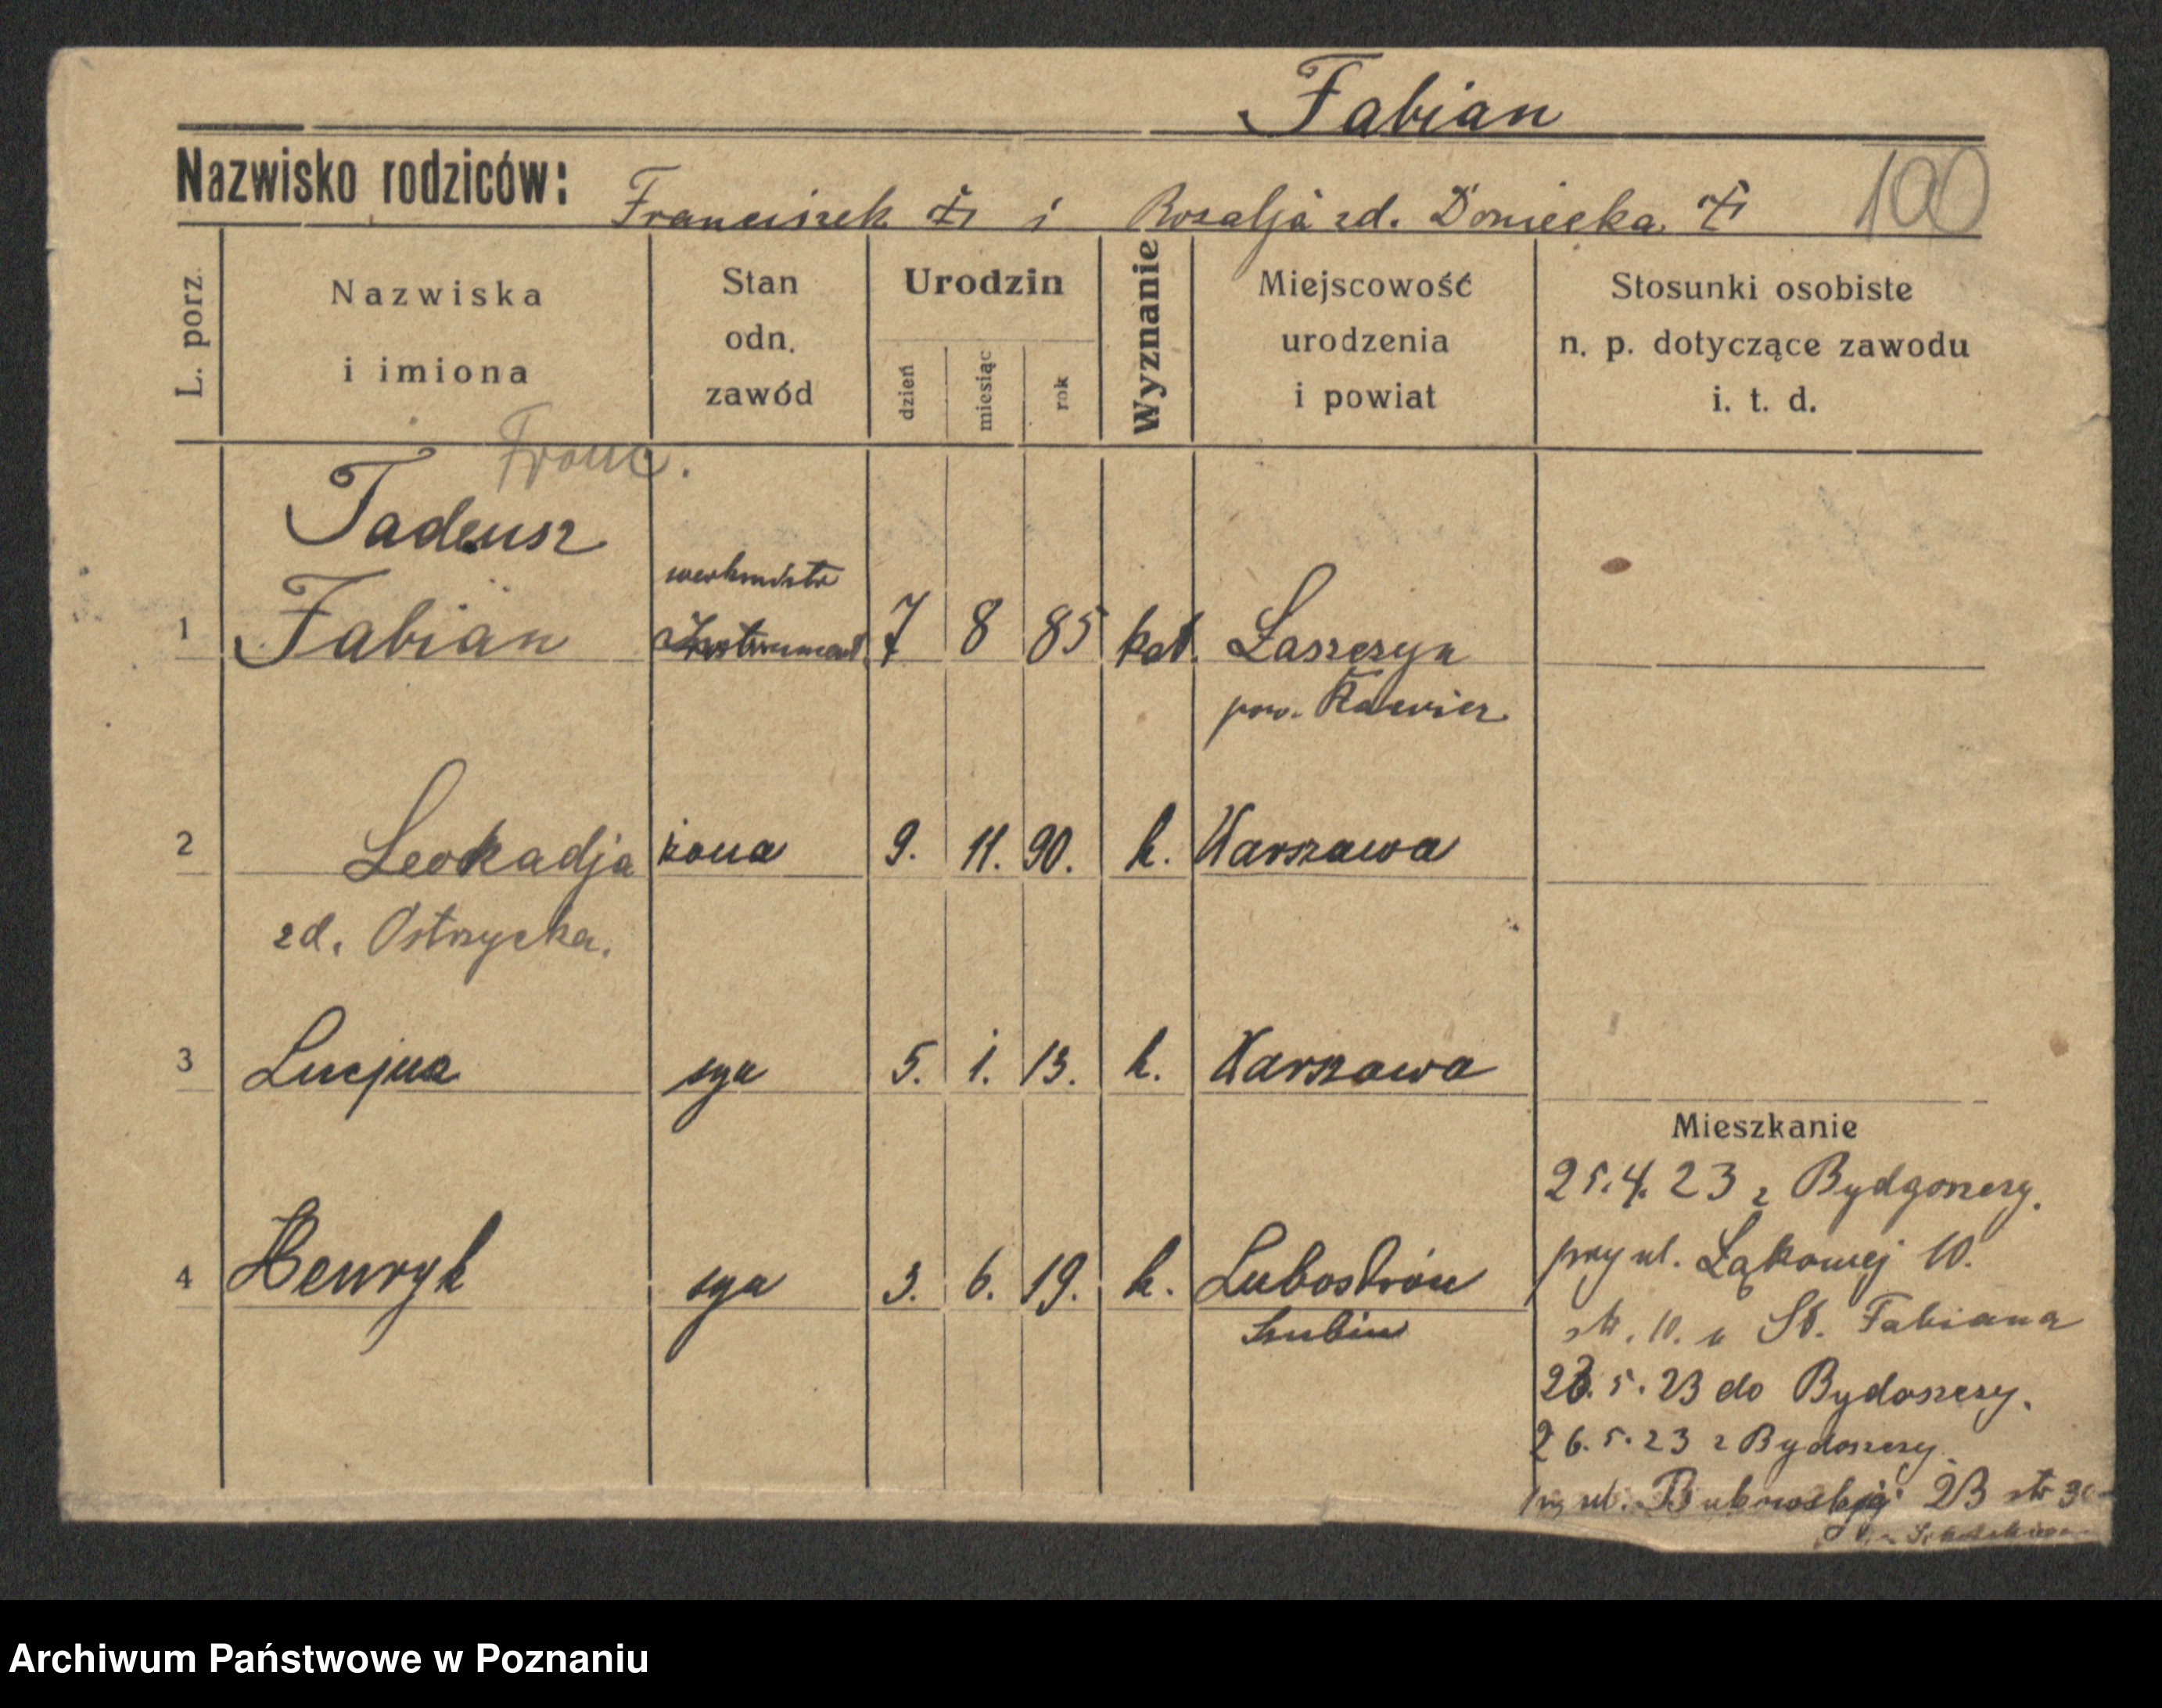 Fabian
Nazwisko rodziców: Franciszek i Rozalja zd. Doniecka 100
L. porz. Nazwiska i imiona Stan odn. zawód Urodzin dzień miesiąc rok Wyznanie Miejscowość urodzenia i powiat Stosunki osobiste n. p. dotyczące zawodu i. t. d.
Franc.
Tadeusz
werkmistr
1 Fabian Instrument. 7 8 85 kat. Łaszczyn
pow. Rawicz
2 Leokadja żona 9. 11. 90. k. Warszawa
zd. Ostrzycka.
3 Lucjna syn 5. 1. 13. k. Warszawa
Mieszkanie
25.4.23 z Bydgoszczy.
przy ul. Łąkowej 10.
4 Henryk syn 3. 6. 19. k. Lubostroń
Szubin
10. u St. Fabiana
23.5.23 do Bydoszczy.
26.5.23 z Bydoszczy
ul. Bukowskiej 23
Archiwum Państwowe w Poznaniu